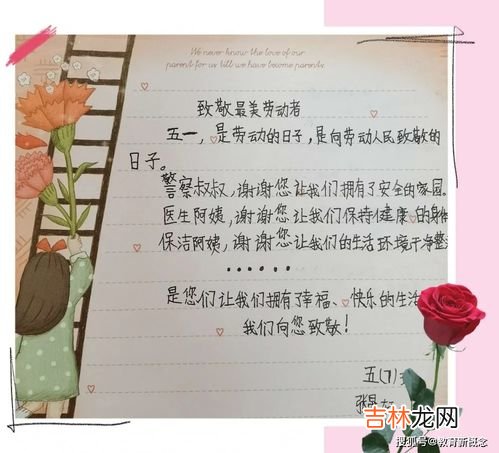 We never know the love of our
parent for us till we have become parents.
致敬最美劳动者
五一，是劳动的日子，是向劳动人民致敬的
日子。
警察叔叔，谢谢您让我们拥有了安全的家园
医生阿姨，谢谢您让我们保持健康的身体
保洁阿姨，谢谢您让我们的生活环境干净整
......
是您们让我们拥有了幸福、快乐的生活
我们向您致敬！
五(7)
吉林龙网
搜狐号@教育新概念